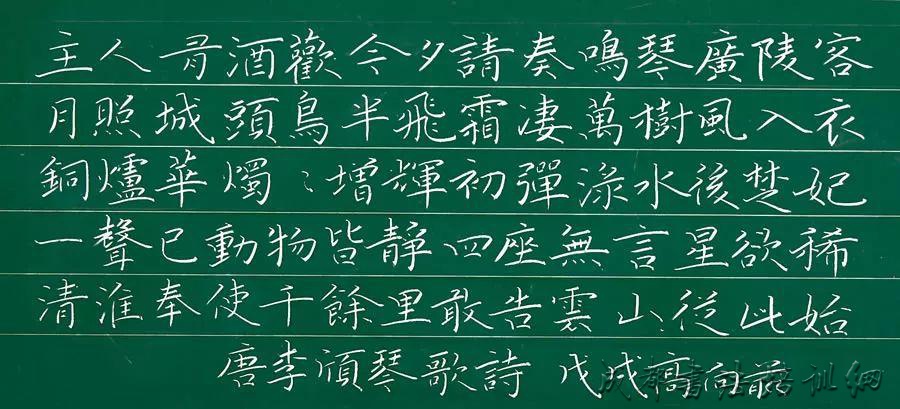 主人有酒歡今夕請奏鳴琴廣陵客
月照城頭鳥半飛霜凄萬樹風入衣
銅爐華燭〻增輝初彈淥水後楚妃
一聲已動物皆靜四座無言星欲稀
清淮奉使千餘里敢告雲山從此始
唐李頎琴歌詩 戊戌高向前
成都書法培训網